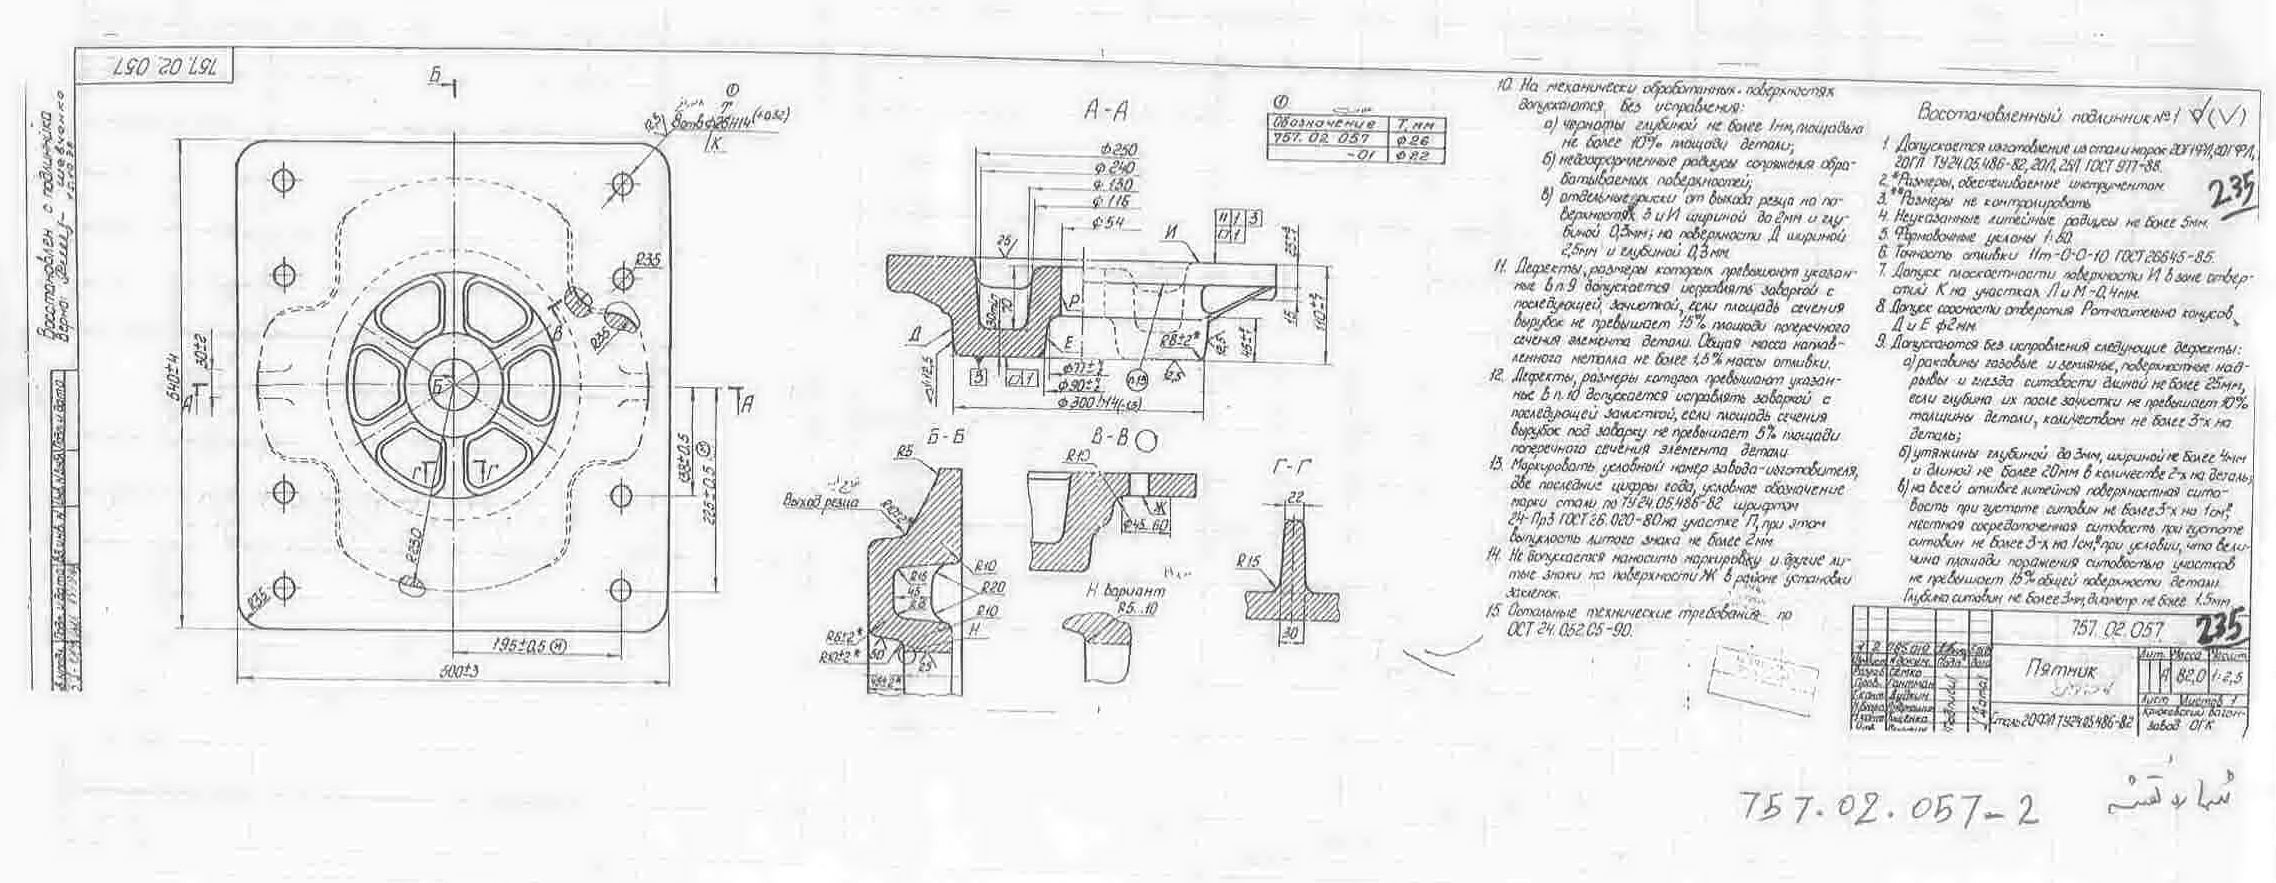 757.02.057
Восстановлен с подлинника
Верно:
Б
①
8 отв ф26Н14(+0,52)
К
540±4
30±2
А
А
Б
В
Г
Г
R35
R35
R230
R35
138±0,5
225±0,5 Ⓜ
195±0,5 Ⓜ
500±3
А-А
ф250
ф240
ф130
ф116
ф54
25
И
// 1 З
▱ 1
70
Р
Д
Е
15
R8±2*
12,5
З
▱ 1
ф300 h14
Б-Б
R5
Выход резца
R10
R16
45
R20
R10
Н
R6±2*
R10±2*
50
В-В
R10
Ж
ф45..60
Н вариант
R5..10
Г-Г
22
R15
30
①
Обозначение Т, мм
757. 02. 057 ф26
-01 ф22
10. На механически обработанных поверхностях
допускаются без исправления:
а) черноты глубиной не более 1мм, площадью
не более 10% площади детали;
б) недооформленные радиусы сопряжения обра-
батываемых поверхностей;
в) отдельные риски от выхода резца на по-
верхностях З и И шириной до 2мм и глу-
биной 0,3мм; на поверхности Д шириной
2,5мм и глубиной 0,3мм.
11. Дефекты, размеры которых превышают указан-
ные в п.9 допускается исправлять заваркой с
последующей зачисткой, если площадь сечения
вырубок не превышает 15% площади поперечного
сечения элемента детали. Общая масса наплав-
ленного металла не более 1,5% массы отливки.
12. Дефекты, размеры которых превышают указан-
ные в п.10 допускается исправлять заваркой с
последующей зачисткой, если площадь сечения
вырубок под заварку не превышает 5% площади
поперечного сечения элемента детали.
13. Маркировать условный номер завода-изготовителя,
две последние цифры года, условное обозначение
марки стали по ТУ24.05.486-82 шрифтом
24-Пр3 ГОСТ 26.020-80 на участке П, при этом
выпуклость литого знака не более 2мм
14. Не допускается наносить маркировку и другие ли-
тые знаки на поверхности Ж в районе установки
заклепок.
15 Остальные технические требования по
ОСТ 24.052.05-90.
Восстановленный подлинник №1 (√)
1. Допускается изготовление из стали марок
20ГЛ ТУ24.05.486-82, 20Л, 25Л ГОСТ 977-88.
2.*Размеры, обеспечиваемые инструментом
3.**Размеры не контролировать
4. Неуказанные литейные радиусы не более 5мм.
5. Формовочные уклоны 1:50.
6. Точность отливки 11т-0-0-10 ГОСТ 26645-85.
7. Допуск плоскостности поверхности И в зоне отвер-
стий К на участках Л и М-0,4мм.
8. Допуск соосности отверстия Р относительно конусов
Д и Е ф2мм.
9. Допускаются без исправления следующие дефекты:
а) раковины газовые и земляные, поверхностные над-
рывы и гнезда ситовости длиной не более 25мм,
если глубина их после зачистки не превышает 10%
толщины детали, количеством не более 3-х на
деталь;
б) утяжины глубиной до 3мм, шириной не более 4мм
и длиной не более 20мм в количестве 2-х на деталь;
в) на всей отливке литейная поверхностная сито-
вость при густоте ситовин не более 3-х на 1см²,
местная сосредоточенная ситовость при густоте
ситовин не более 3-х на 1см², при условии, что вели-
чина площади поражения ситовостью участков
не превышает 15% общей поверхности детали.
Глубина ситовин не более 3мм, диаметр не более 1,5мм
235
757.02.057
235
Пятник
Лит. Масса Масшт.
А 82,0 1:2,5
Лист Листов 1
Сталь 20ФЛ ТУ24.05.486-82
Крюковский вагон-
завод ОГК
757.02.057-2
شماره نقشه